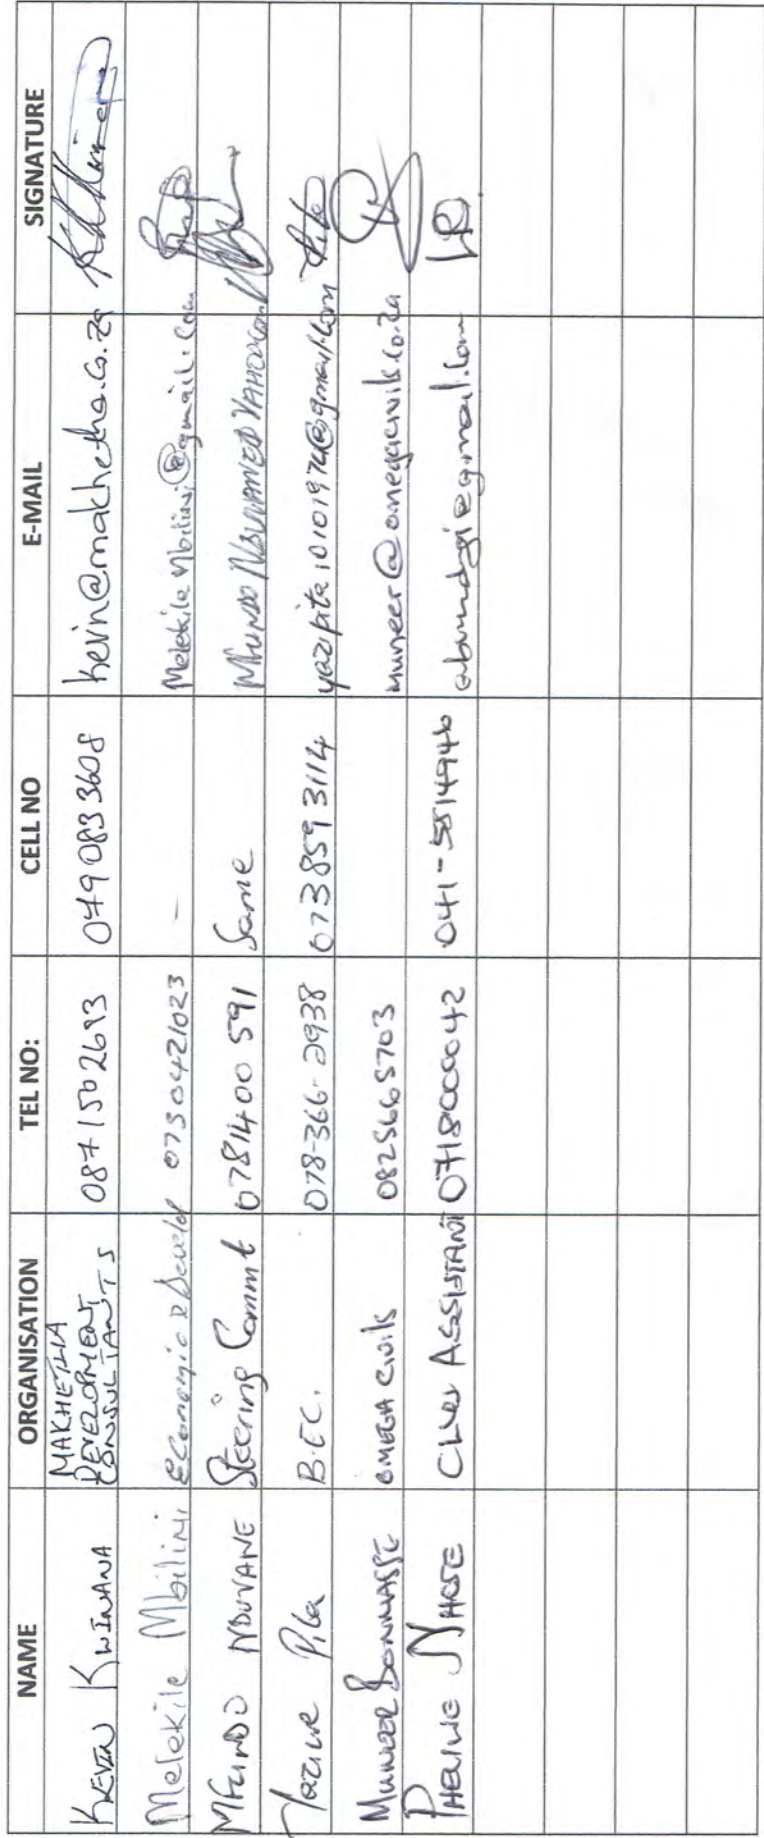 NAME ORGANISATION TEL NO: CELL NO E-MAIL SIGNATURE
KEVIN KWINANA MAKHETHA DEVELOPMENT CONSULTANTS 0871502693 0790833608 kevin@makhetha.co.za
Melekile Mbilini Economic & Develo 0730421023 - Melekile Mbilini@gmail.com
MFUNDO NDUVANE Steering Commt 0781400 591 Same
Pita B.EC. 078-366-2938 0738593114 yazipita10101974@gmail.com
MUNEER OMEGA CIVILS 0825665703 muneer@omegacivils.co.za
ASSISTANT 0718000042 041-5814946